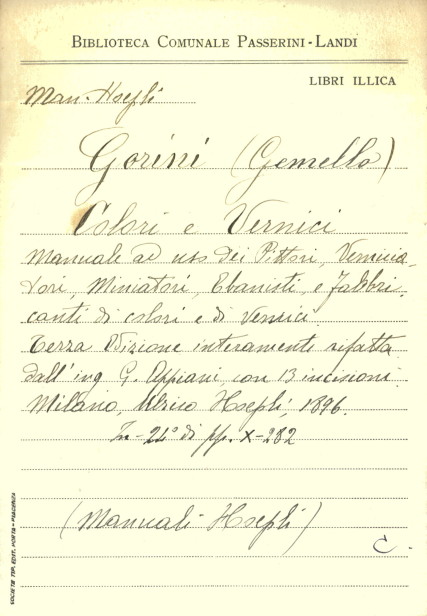 BIBLIOTECA COMUNALE PASSERINI-LANDI
LIBRI ILLICA
Man. Hoepli
Gorini (Gemello)
Colori e Vernici
Manuale ad uso dei Pittori, Vernicia-
tori, Miniatori, Ebanisti, e Fabbri-
canti di colori e di vernici.
Terza Edizione interamente rifatta
dall'ing G. Appiani, con 13 incisioni.
Milano, Ulrico Hoepli, 1896.
In-24° di pp. X-282
(Manuali Hoepli)
C.
SOCIETÀ TIP. EDIT. PORTA-PIACENZA